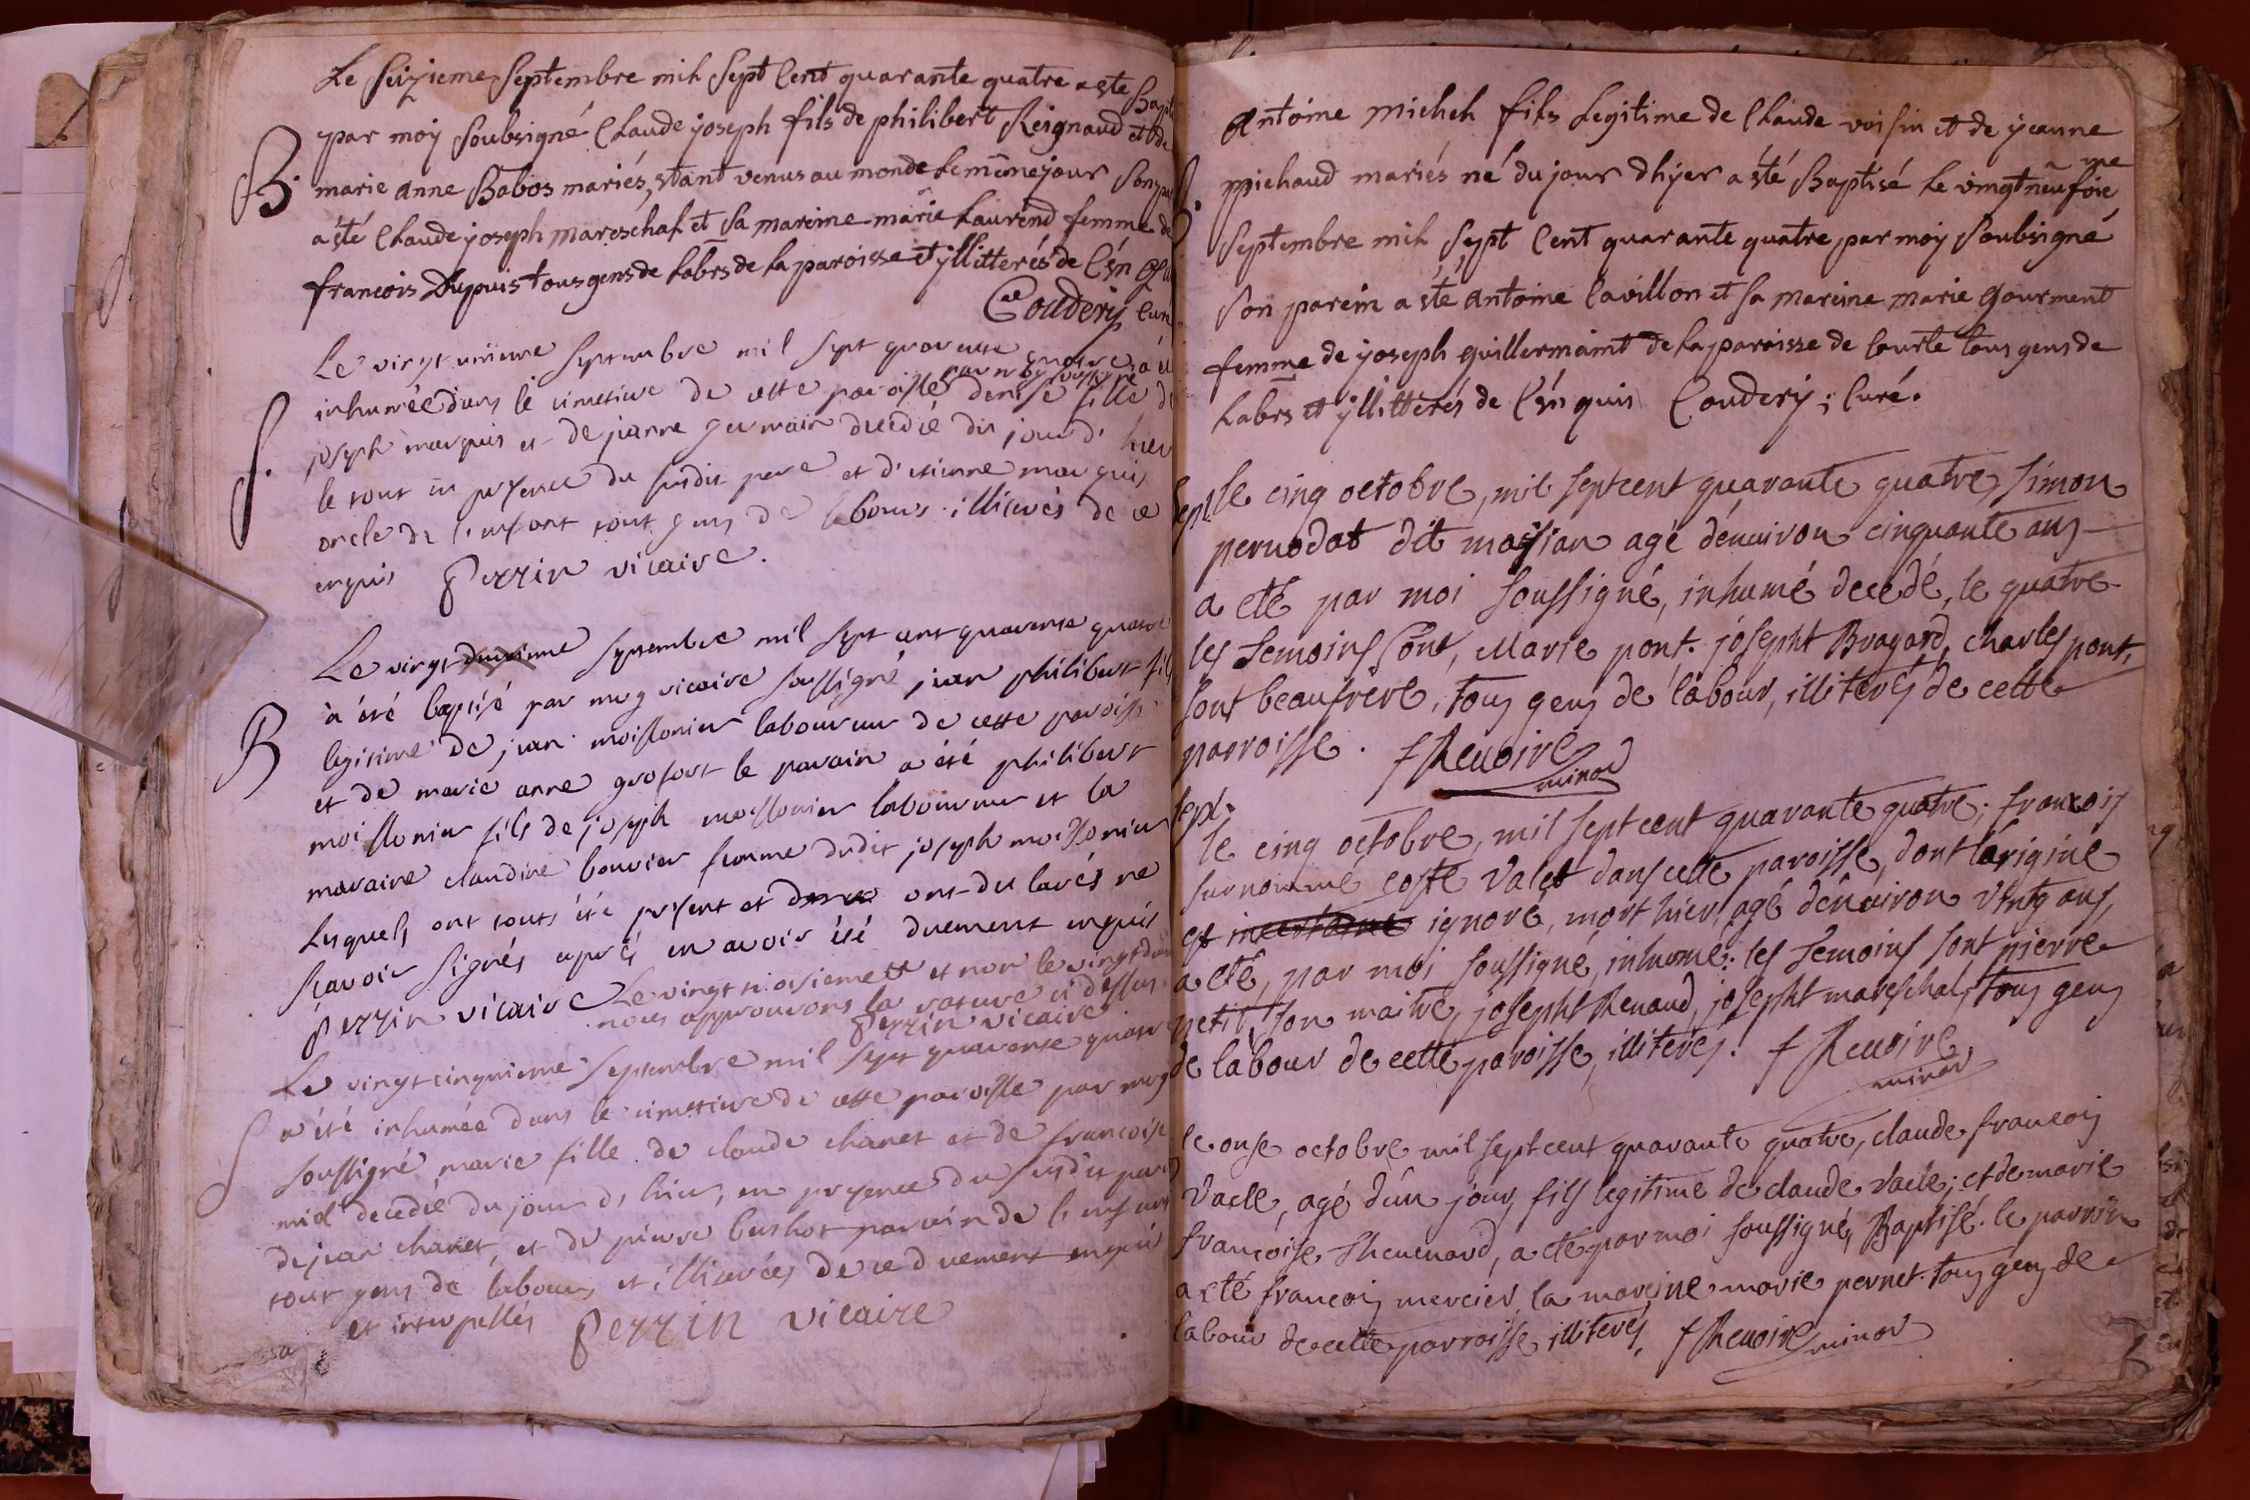 Le seizieme septembre mil sept Cent quarante quatre a ste Bapt
par moy soubsigné Claude joseph fils de philibert Reignaud et de
B. marie anne Bobos mariés, stant venus au monde le mēme jour son pa
a sté Claude joseph mareschal et sa mareine marie Laurend femme de
francois Dupuis tous gens de Labrs de la paroisse et yllitterés de Cēn
Couderij Cur
Le vingt unieme septembre mil sept quarante quatre a é
par moy soussigné
inhumée dans le cimetiere de cette paroisse denise fille d
S. joseph marquis et de jeanne germain decedé du jour d'hier
le tout en presence du susdit pere et d'etienne marquis
oncle de l'enfant tout gens de labours illiterés de ce
enquis Perrin vicaire.
Le vingt deuxieme septembre mil sept cent quarante quatre
a été baptisé par moy vicaire soussigné jean philibert fil
B legitime de jean moissonier laboureur de cette paroisse
et de marie anne grofort le parain a été philibert
moissonier fils de joseph moissonier laboureur et la
maraine claudine bouvier femme dudit joseph moissonier
Lesquels ont touts été present et ont declarés ne
scavoir signés aprés en avoir été duement enquis
Perrin vicaire Le vingt troisieme et non le vingt deux
nous approuvons la rature ci dessus
Perrin vicaire
Le vingt cinquieme septembre mil sept quarante quatre
S a été inhumée dans le cimetiere de cette paroisse par moy
soussigné marie fille de claude chanet et de francoise
miel decedée du jour d'hier, en presence du susdit pere
de jean chanet, et de pierre buchot parain de l'enfant
tout gens de labours et illiterées de ce duement enquis
et interpellés Perrin vicaire
Antoine michel fils Legitime de Claude voisin et de jeanne
michaud mariés né du jour dhyer a sté Baptisé le vingt neufvieme
septembre mil sept Cent quarante quatre par moy soubsigné
son parein a sté antoine Cavillon et sa mareine marie Gourment
femme de joseph guillermaint de la paroisse de Courte tous gens de
Labrs et yllitterés de Cēn quis Couderij; Curé.
Sept. le cinq octobre, mil sept cent quarante quatre, simon
pernodat dit massian agé dénuiron cinquante ans
a eté par moi soussigné, inhumé decedé, le quatre
les temoins sont, Marie pont. josepht Bragard, charles pont,
sont beaufrere, tous gens de labour, illiterés de cette
parroisse. f Reuoire minor
sept.
le cinq octobre, mil sept cent quarante quatre; francois
surnommé coste valet dans cette paroisse, dont lórigine
est incertaine ignoré, mort hier, agé dénuiron vingt ans,
a eté, par moi soussigné, inhumé: les temoins sont pierre
petit, son maitre, josepht Renaud, josepht mareschal, tous gens
de labour de cette paroisse, illiterés. f Reuoire
minor
le onse octobre mil sept cent quarante quatre, claude francois
vacle, agé d'ún jour, fils legitime de claude vacle; et de marie
francoise theuenard, a eté par moi soussigné, Baptisé. le parrin
a eté francois mercier, la mareine marie pernet. tous gens de
labour de cette parroisse, illiterés, f Reuoire minor